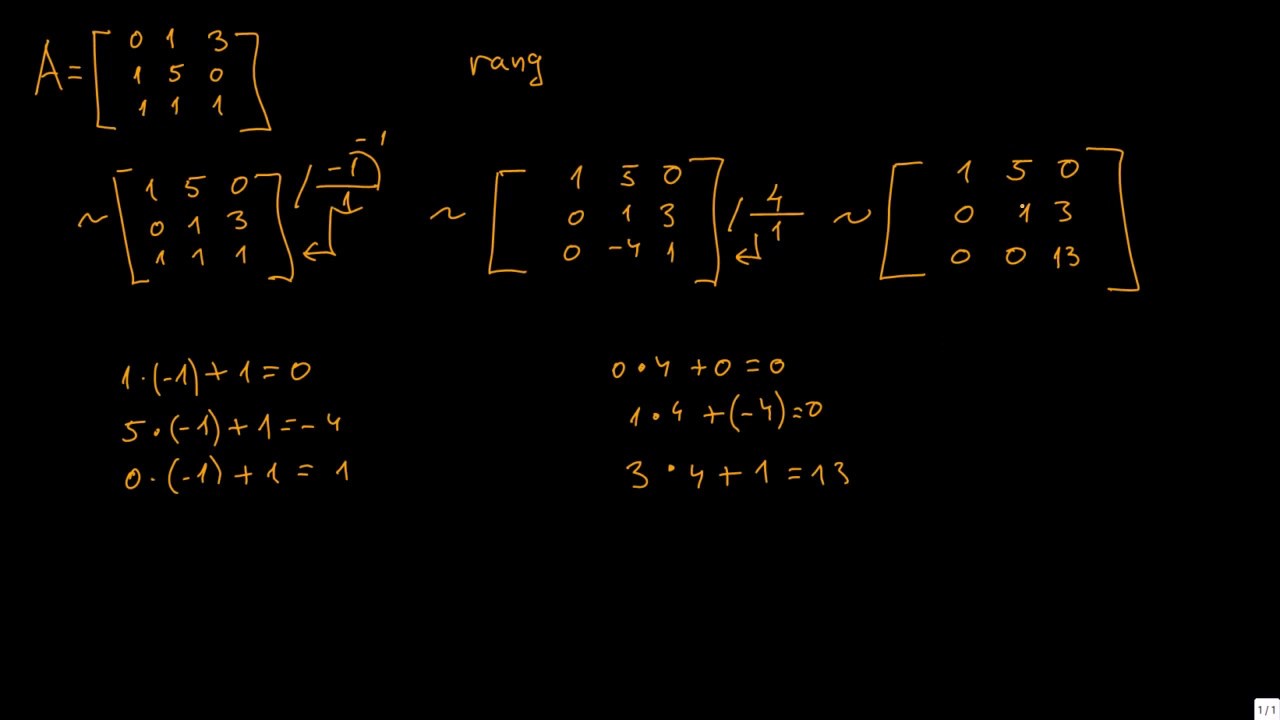 A = [ 0 1 3
1 5 0
1 1 1 ]
rang
~ [ 1 5 0
0 1 3
1 1 1 ] / -1/1 -1
~ [ 1 5 0
0 1 3
0 -4 1 ] / 4/1
~ [ 1 5 0
0 1 3
0 0 13 ]
1·(-1)+1=0
5·(-1)+1=-4
0·(-1)+1=1
0·4+0=0
1·4+(-4)=0
3·4+1=13
1/1